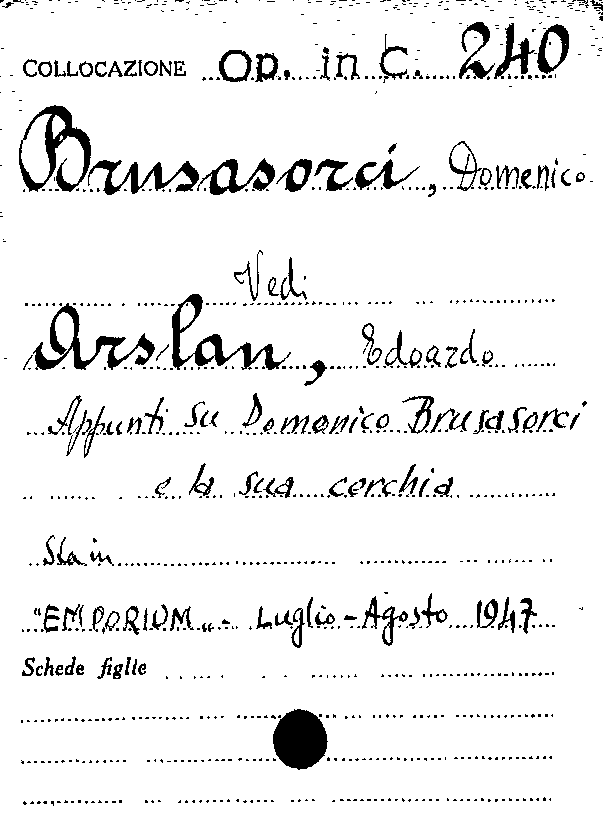 COLLOCAZIONE Op. in C. 240
Brusasorci, Domenico
Vedi
Arslan, Edoardo
Appunti su Domenico Brusasorci
e la sua cerchia
Sta in
"EMPORIUM" - Luglio - Agosto 1947
Schede figlie